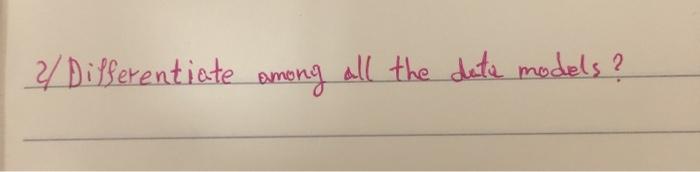 2/ Differentiate among all the data models?